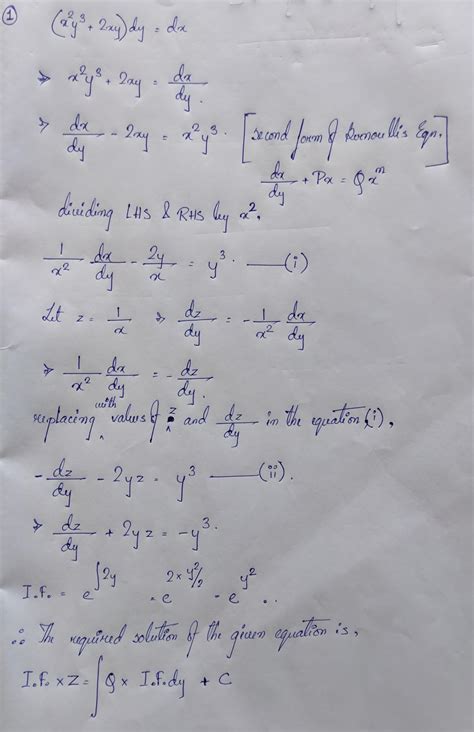 ①
(x²y³ + 2xy) dy = dx
⇒ x²y³ + 2xy = dx/dy.
⇒ dx/dy - 2xy = x²y³. [second form of Bornoulli's Eqn.]
dx/dy + Px = Qxⁿ
dividing LHS & RHS by x².
1/x² dx/dy - 2y/x = y³. —(i)
Let z = 1/x ⇒ dz/dy = -1/x² dx/dy
⇒ 1/x² dx/dy = - dz/dy.
replacing with values of z and dz/dy in the equation (i),
- dz/dy - 2yz = y³ —(ii).
⇒ dz/dy + 2yz = -y³.
I.F. = e^∫2y = e^2×y²/2 = e^y² ..
∴ The required solution of the given equation is,
I.F. × Z = ∫Q × I.F. dy + C